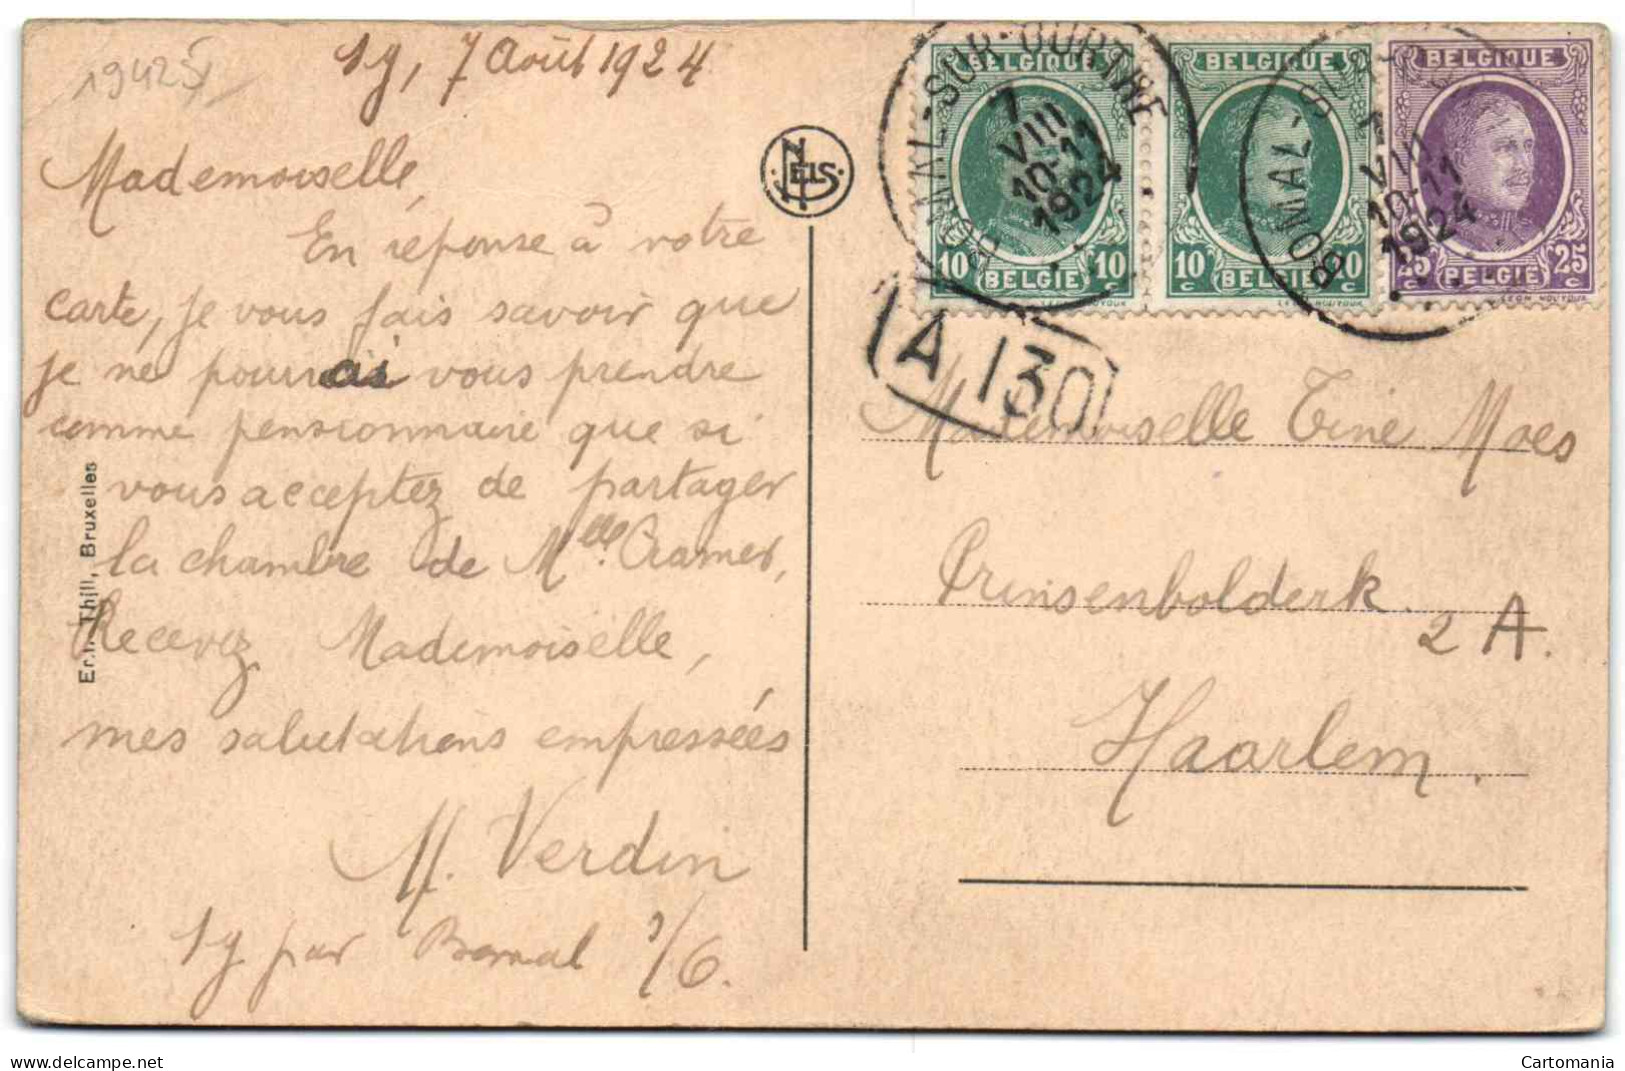 19425
Sy, 7 Août 1924
Mademoiselle,
En réponse à votre
carte, je vous fais savoir que
je ne pourrai vous prendre
comme pensionnaire que si
vous acceptez de partager
la chambre de Mlle Cramer,
Recevez Mademoiselle,
mes salutations empressées
M. Verdin
Sy par Bomal s/O.
Ern. Thill, Bruxelles
NELS
BELGIQUE
10c BELGIË 10c
LÉON HOUYOUX
BELGIQUE
10c BELGIË 10c
LÉON HOUYOUX
BELGIQUE
25c BELGIË 25c
LÉON HOUYOUX
BOMAL-SUR-OURTHE
7
VIII
10-11
1924
BOMAL-SUR-
VIII
10-11
1924
A 130
Mademoiselle Tine Maes
Prinsenbolderk
2 A.
Haarlem.
delcampe.net
Cartomania